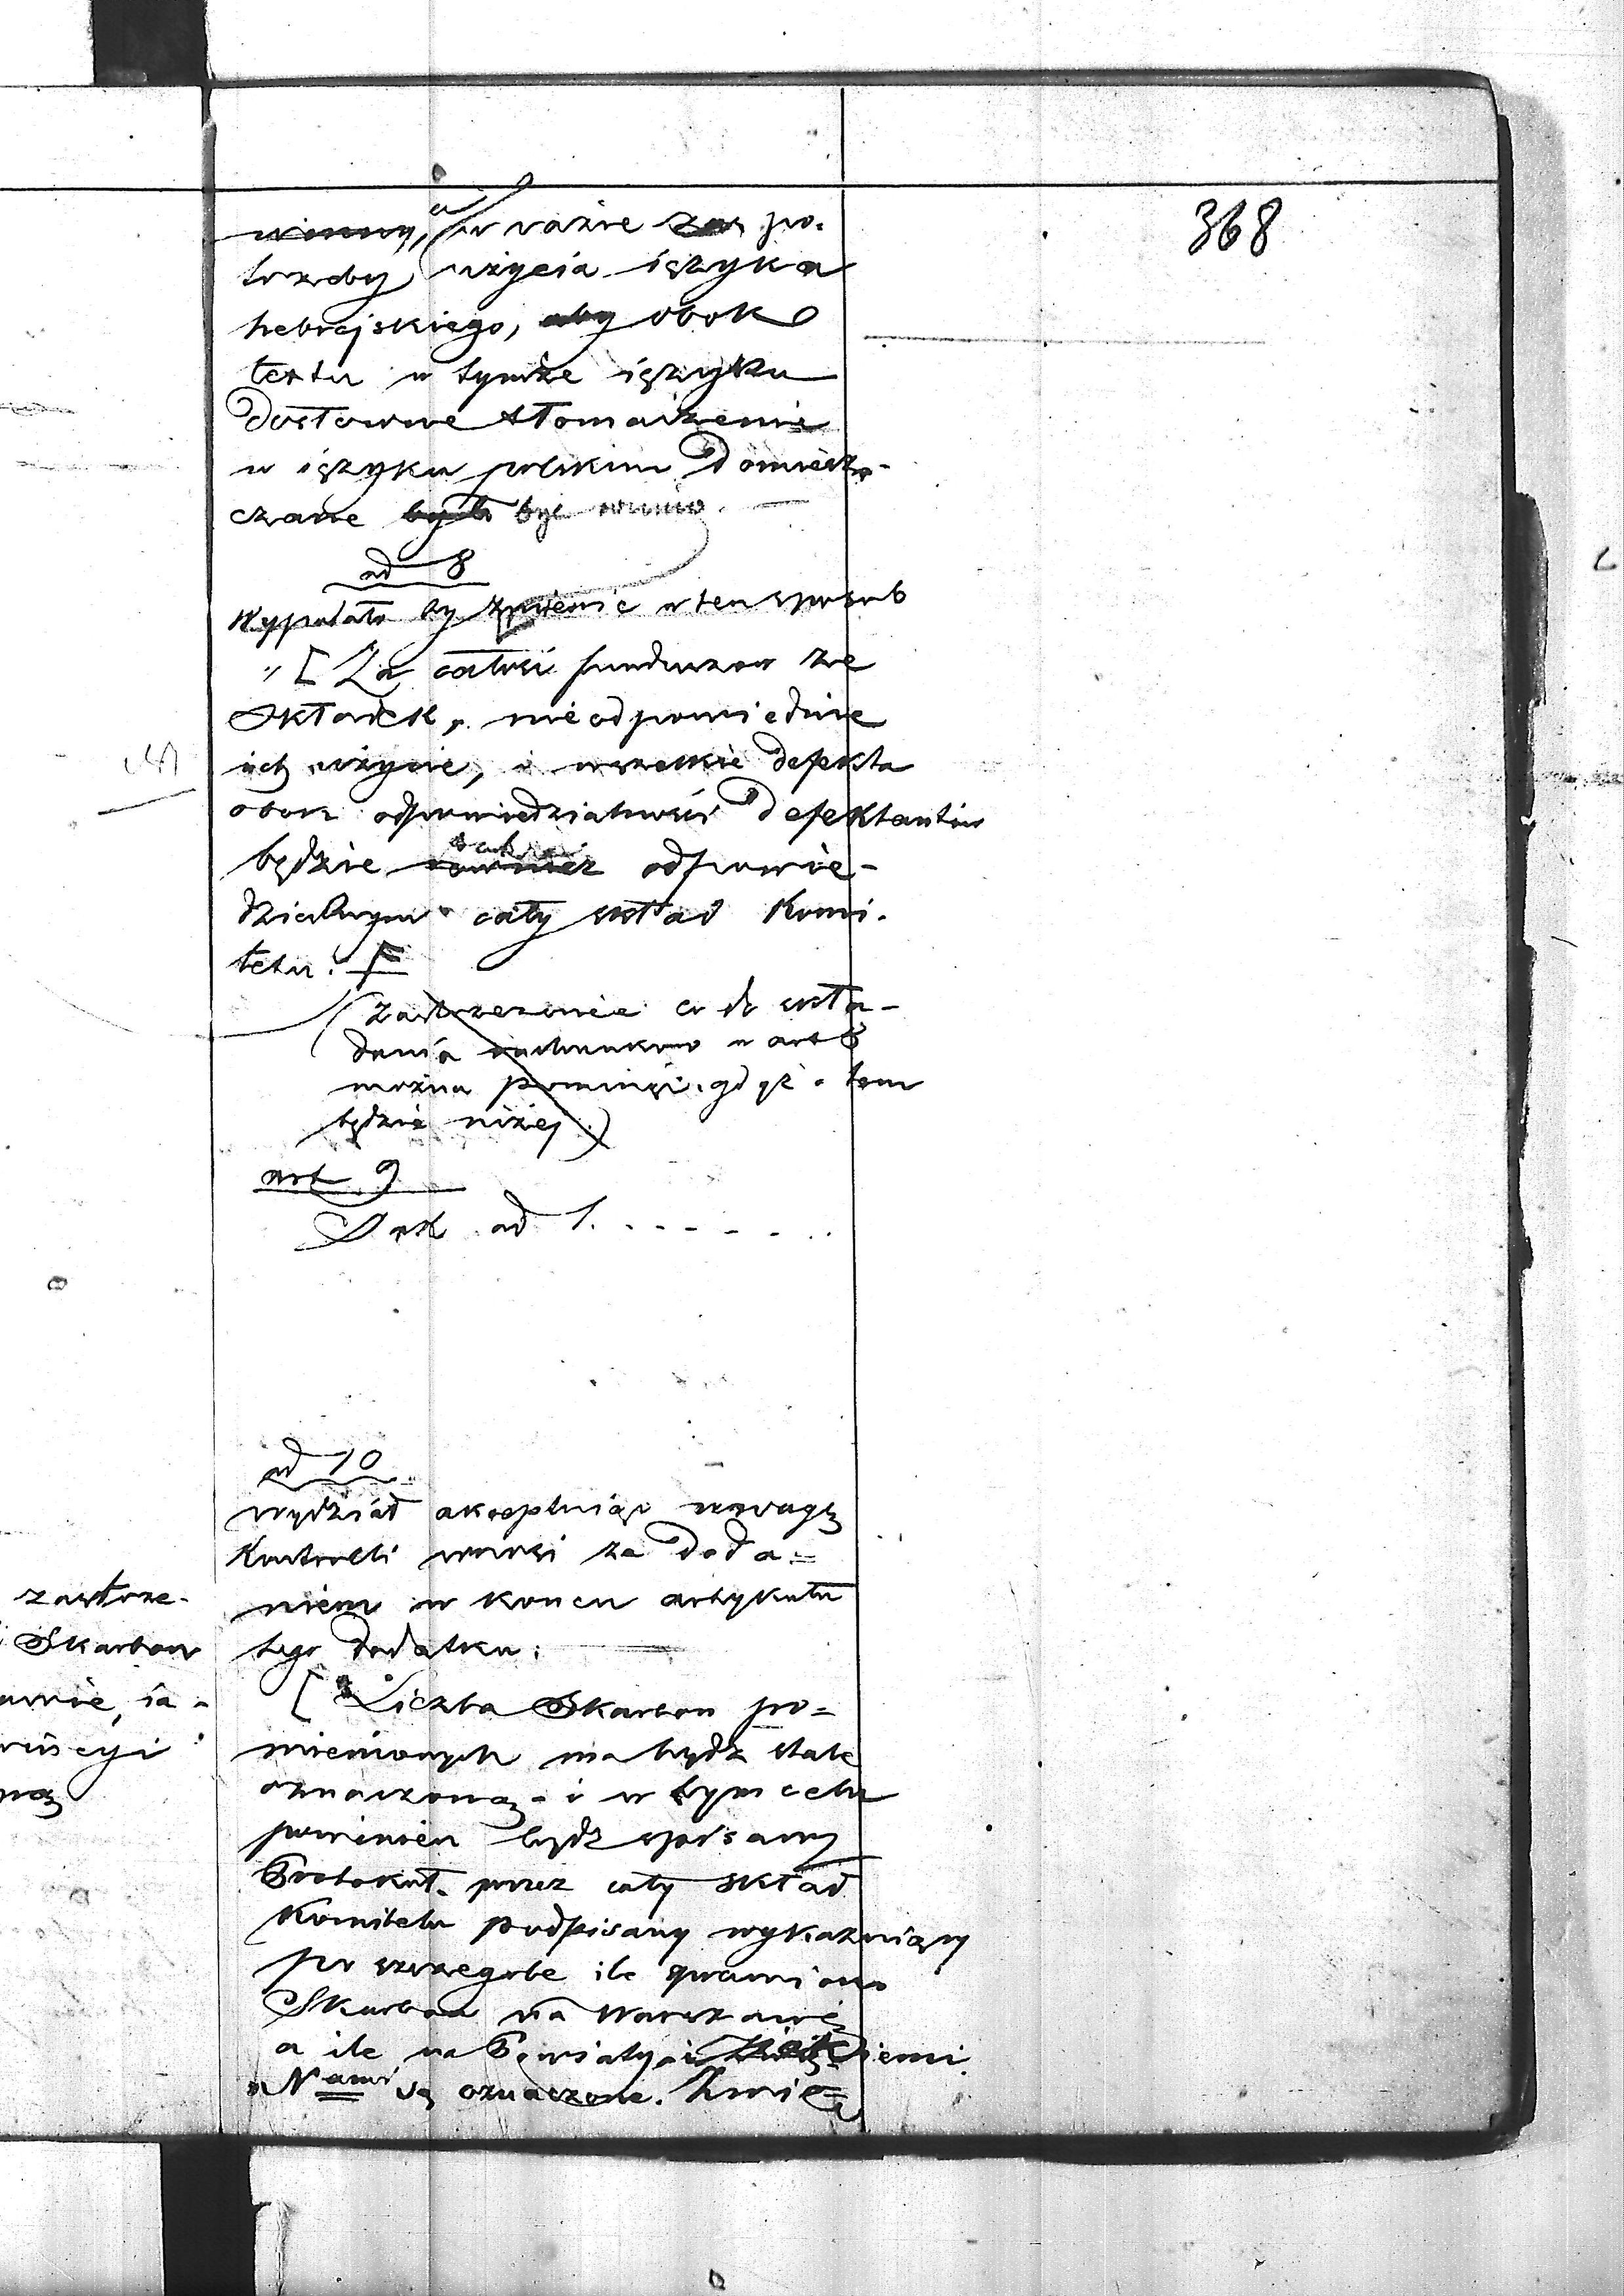 368
winny, a w razie zaś po-
trzeby użycia ięzyka
hebrajskiego, aby obok
textu w tymże ięzyku
dosłowne tłomaczenie
w ięzyku polskim domiesz-
czane było być winno. —
ad 8
Wypadało by zmienić w ten sposób
„[Za całość funduszów ze
składek, nieodpowiednie
ich użycie, i wszelkie defekta
obok odpowiedzialności defektantów
będzie również odpowie-
dzialnym cały skład Komi-
tetu.
(zastrzeżenie co do skła-
dania rachunków w art 8
można pominąć, gdyż o tem
będzie niżej.)
art 9
Jak ad 1. - - - - -
ad 10
wydział akceptując uwagę
Kontrolli wnosi za doda=
niem w końcu artykułu
tego dodatku:
[Liczba Skarbon po=
mienionych ma bydź stale
oznaczoną - i w tym celu
powinien bydź spisany
Protokuł przez cały skład
Komitetu podpisany wykazuiący
po szczególe ile sprawiono
Skarbon na Warszawę
a ile na Powiaty i iakiemi
Nami są oznaczone.
zastrze-
Skarbon
awie, ia-